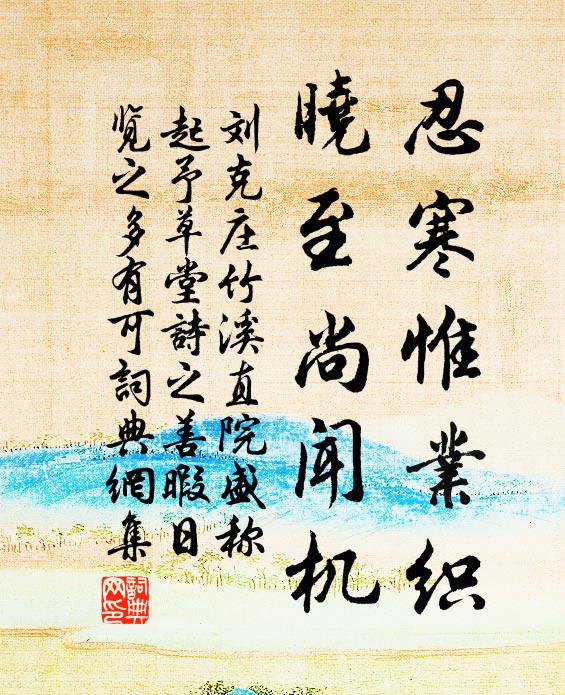 忍寒惟業织
曉至尚闻机
刘克庄竹溪直院盛称
起予草堂詩之善暇日
览之多有可詞典網集
詞典网印